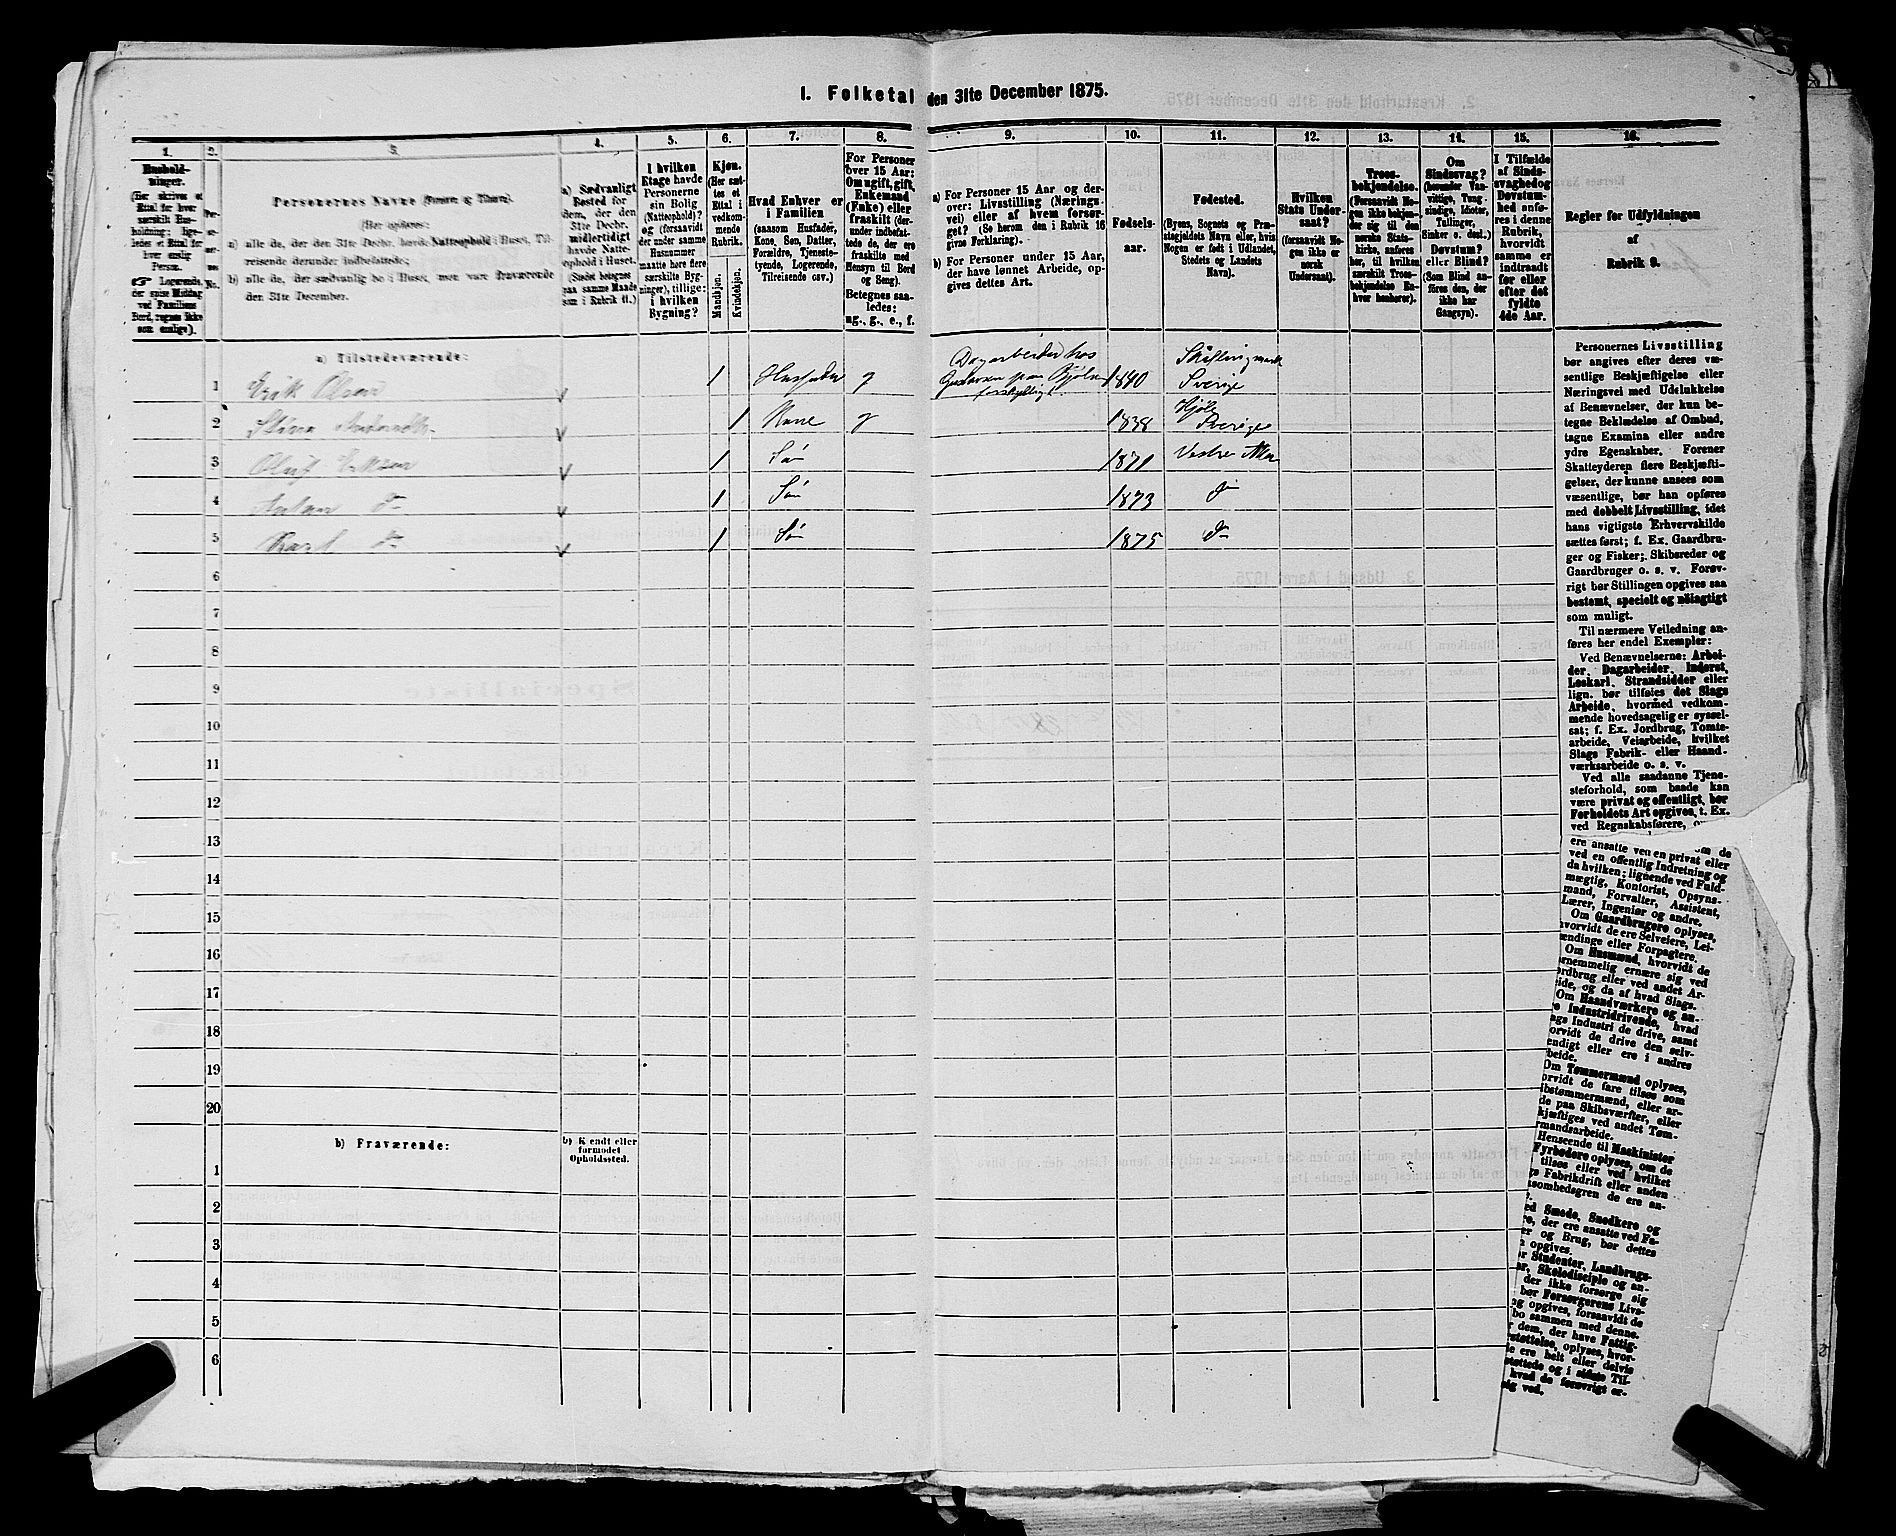 I. Folketal den 31te December 1875.
1. 2. 3. 4. 5. 6. 7. 8. 9. 10. 11. 12. 13. 14. 15. 16.
Hushold-
ninger.
(Her skrives et
Ettal for hver
særskilt Hus-
holdning; lige-
ledes et Ettal for
hver enslig
Person.
☞ Logerende,
der spise Middag
ved Familiens
Bord, regnes ikke
som enslige).
Personernes Navne (Fornavn og Tilnavn).
(Her opføres:
a) alle de, der den 31te Decbr. havde Natteophold i Huset, Til-
reisende derunder indbefattede;
b) alle de, der sædvanlig bo i Huset, men vare fraværende
den 31te December.
a) Sædvanligt
Bosted for
dem, der den
31te Decbr.
midlertidigt
havde Natte-
ophold i Huset.
(Stedet betegnes
paa samme Maade
som i Rubrik 11.)
I hvilken
Etage havde
Personerne
sin Bolig
(Natteophold)?
og (forsaavidt
der under samme
Husnummer
maatte høre flere
særskilte Byg-
ninger), tillige:
i hvilken
Bygning?
Kjøn.
(Her sæt-
tes et
Ettal i
vedkom-
mende
Rubrik.
Mandkjøn.
Kvindekjøn.
Hvad Enhver er
i Familien
(saasom Husfader,
Kone, Søn, Datter,
Forældre, Tjeneste-
tyende, Logerende,
Tilreisende osv.)
For Personer
over 15 Aar:
Om ugift, gift,
Enkemand
(Enke) eller
fraskilt (der-
under indbefat-
tede de, der ere
fraskilte med
Hensyn til Bord
og Seng).
Betegnes saa-
ledes:
ug., g., e., f.
a) For Personer 15 Aar og der-
over: Livsstilling (Nærings-
vei) eller af hvem forsør-
get? (Se herom den i Rubrik 16
givne Forklaring).
b) For Personer under 15 Aar,
der have lønnet Arbeide, op-
gives dettes Art.
Fødsels-
aar.
Fødested.
(Byens, Sognets og Præ-
stegjeldets Navn eller, hvis
Nogen er født i Udlandet,
Stedets og Landets
Navn).
Hvilken
Stats Under-
saat?
(forsaavidt No-
gen ikke er
norsk
Undersaat).
Troes-
bekjendelse.
(Forsaavidt No-
gen ikke bekjen-
der sig til den
norske Stats-
kirke, anføres
her, til hvilken
særskilt Troes-
bekjendelse En-
hver henhører).
Om
Sindssvag?
(herunder Van-
vittige, Tung-
sindige, Idioter,
Tullinger,
Sinker o. desl.)
Døvstum?
eller Blind?
(Som Blind an-
føres den, der
ikke har
Gangsyn).
I Tilfælde
af Sinds-
svaghed og
Døvstum-
hed anfø-
res i denne
Rubrik,
hvorvidt
samme er
indtraadt
før eller
efter det
fyldte
4de Aar.
Regler for Udfyldningen
af
Rubrik 9.
a) Tilstedeværende:
1 Erik Olsen 1 Husfader g Dagarbeider hos 1840 Sverige
2 1 Kone g 1838 Sverige
3 Oluf Eriksen 1 Søn 1871 Vestre Aker
4 do 1 Søn 1873 do
5 Karl do 1 Søn 1875 do
6
7
8
9
10
11
12
13
14
15
16
17
18
19
20
b) Fraværende:
b) Kjendt eller
formodet
Opholdssted.
1
2
3
4
5
6
Personernes Livsstilling
bør angives efter deres væ-
sentlige Beskjæftigelse eller
Næringsvei med Udelukkelse
af Benævnelser, der kun be-
tegne Beklædelse af Ombud,
tagne Examina eller andre
ydre Egenskaber. Forener
Skatteyderen flere Beskjæfti-
gelser, der kunne ansees som
væsentlige, bør han opføres
med dobbelt Livsstilling, idet
hans vigtigste Erhvervskilde
sættes først; f. Ex. Gaardbru-
ger og Fisker; Skibsreder og
Gaardbruger o. s. v. Forøv-
rigt bør Stillingen opgives saa
bestemt, specielt og nøiagtigt
som muligt.
Til nærmere Veiledning an-
føres her endel Exempler:
Ved Benævnelserne: Arbei-
der, Dagarbeider, Inderst,
Løskarl, Strandsidder eller
lign. bør tilføies det Slags
Arbeide, hvormed vedkom-
mende hovedsagelig er syssel-
sat; f. Ex. Jordbrug, Tomte-
arbeide, Veiarbeide, hvilket
Slags Fabrik- eller Haand-
værksarbeide o. s. v.
Ved alle saadanne Tjene-
steforhold, som baade kan
være privat og offentligt, bør
Forholdets Art opgives, t. Ex.
ved Regnskabsførere,
om de
ere ansatte ved en privat eller
ved en offentlig Indretning og
da hvilken; lignende ved Fuld-
mægtig, Kontorist, Opsyns-
mand, Forvalter, Assistent,
Lærer, Ingeniør og andre.
Om Gaardbrugere oplyses,
hvorvidt de ere Selveiere, Lei-
lændinge eller Forpagtere.
Om Husmænd, hvorvidt de
ornemmelig ernære sig ved
ordbrug eller ved andet Ar-
eide, og da af hvad Slags.
Om Haandværkere og an-
e Industridrivende, hvad
lags Industri de drive, samt
orvidt de drive den selv-
endigt eller ere i andres
beide.
Om Tømmermænd oplyses,
orvidt de fare tilsøs som
ibstømmermænd, eller ar-
de paa Skibsværfter, eller
kjæftiges ved andet Tøm-
rmandsarbeide.
Henseende til Maskinister
Fyrbødere oplyses, om de
tilsøs eller ved hvilket
gs Fabrikdrift eller anden
somhedsgren de ere an-
ed Smede, Snedkere og
e, der ere ansatte ved Fa-
er og Brug, bør dettes
opgives.
r Studenter, Landbrugs-
er, Skoledisciple og an-
der ikke forsørge sig
bør Forsørgerens Livs-
ng opgives, forsaavidt de
bo sammen med denne.
r dem, der have Fattig-
støttelse, oplyses, hvor-
e ere helt eller delvis
støttede og i sidste Til-
hvad de forøvrigt er-
sig ved.